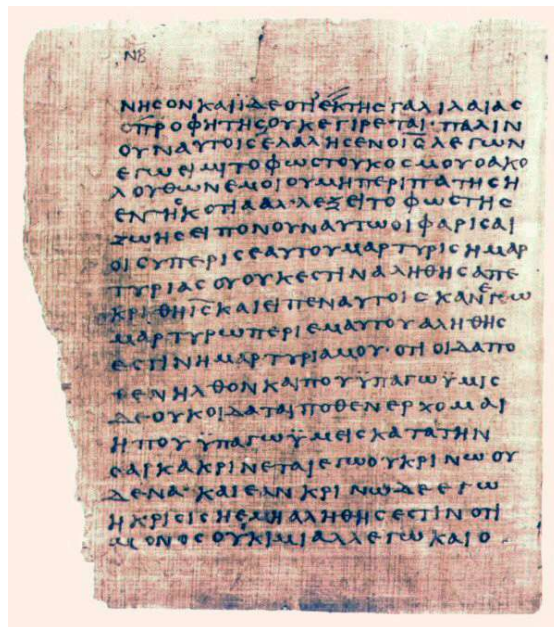 ΝΒ
ΝΗϹΟΝΚΑΙΪΔΕΟΤΙΕΚΤΗϹΓΑΛΙΛΑΙΑϹ
ΟΠΡΟΦΗΤΗϹΟΥΚΕΓΙΡΕΤΑΙ·ΠΑΛΙΝ
ΟΥΝΑΥΤΟΙϹΕΛΑΛΗϹΕΝΟΙ̅Ϲ̅ΛΕΓΩΝ
ΕΓΩΕΙΜΙΤΟΦΩϹΤΟΥΚΟϹΜΟΥΟΑΚΟ
ΛΟΥΘΩΝΕΜΟΙΟΥΜΗΠΕΡΙΠΑΤΗϹΗ
ΕΝΤΗϹΚΟΤΙΑΑΛΛΕΞΕΙΤΟΦΩϹΤΗϹ
ΖΩΗϹΕΙΠΟΝΟΥΝΑΥΤΩΟΙΦΑΡΙϹΑΙ
ΟΙϹΥΠΕΡΙϹΕΑΥΤΟΥΜΑΡΤΥΡΙϹΗΜΑΡ
ΤΥΡΙΑϹΟΥΟΥΚΕϹΤΙΝΑΛΗΘΗϹΑΠΕ
ΚΡΙΘΗΙ̅Ϲ̅ΚΑΙΕΙΠΕΝΑΥΤΟΙϹΚΑΝΕΓΩ
ΜΑΡΤΥΡΩΠΕΡΙΕΜΑΥΤΟΥΑΛΗΘΗϹ
ΕϹΤΙΝΗΜΑΡΤΥΡΙΑΜΟΥ·ΟΤΙΟΙΔΑΠΟ
ΘΕΝΗΛΘΟΝΚΑΙΠΟΥΫΠΑΓΩΫΜΙϹ
ΔΕΟΥΚΟΙΔΑΤΑΙΠΟΘΕΝΕΡΧΟΜΑΙ
ΗΠΟΥΫΠΑΓΩΫΜΕΙϹΚΑΤΑΤΗΝ
ϹΑΡΚΑΚΡΙΝΕΤΑΙΕΓΩΟΥΚΡΙΝΩΟΥ
ΔΕΝΑ·ΚΑΙΕΑΝΚΡΙΝΩΔΕΕΓΩ
ΗΚΡΙϹΙϹΗΕΜΗΑΛΗΘΗϹΕϹΤΙΝΟΤΙ
ΜΟΝΟϹΟΥΚΙΜΙΑΛΛΕΓΩΚΑΙΟ